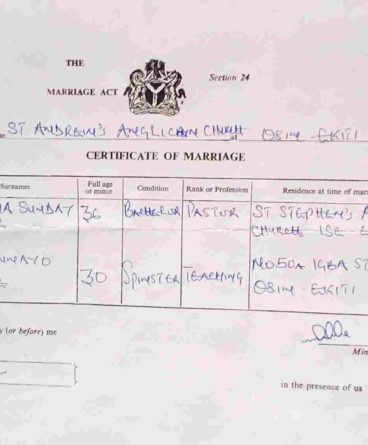 THE
MARRIAGE ACT
Section 24
ST ANDREW'S ANGLICAN CHURCH at OSIN - EKITI
CERTIFICATE OF MARRIAGE
Surnames Full age or minor Condition Rank or Profession Residence at time of mar
A SUNDAY 36 BACHELOR PASTOR ST STEPHEN'S A
CHURCH ISE - E
30 SPINSTER TEACHING NO 50A IGBA ST
OSIN - EKITI
y (or before) me
Min
in the presence of us